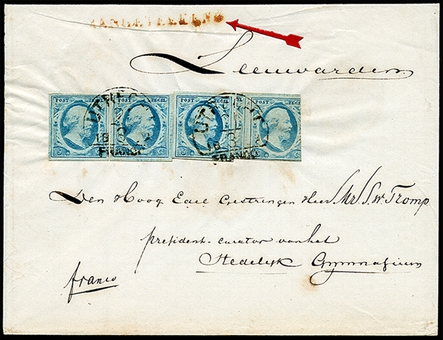 AANGETEEKEND
Leeuwarden
POST ZEGEL POST ZEGEL POST ZEGEL POST ZEGEL
UTRECHT
FRANCO
UTRECHT
FRANCO
Den Hoog Edel Gestrengen Heer Mr. S. W. Tromp
president-curator van het
Stedelijk Gymnasium
franco